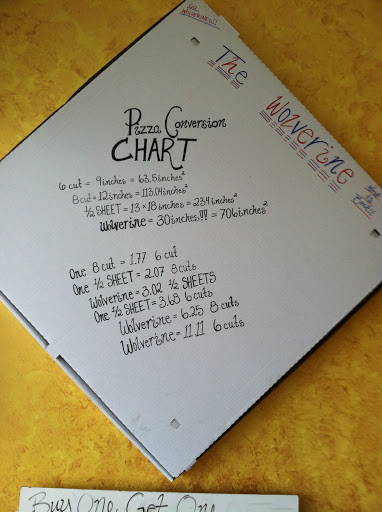 GO
WOLVERINES!!
The
Wolverine
Pizza Conversion
CHART
6 cut = 9inches = 63.5inches²
8 cut = 12inches = 113.04inches²
1/2 SHEET = 13 × 18inches = 234inches²
Wolverine = 30inches!!! = 706inches²
One 8 cut = 1.77 6 cut
One 1/2 SHEET = 2.07 8 cuts
Wolverine = 3.02 1/2 SHEETS
One 1/2 SHEET = 3.68 6 cuts
Wolverine = 6.25 8 cuts
Wolverine = 11.11 6 cuts
Buy One, Get One